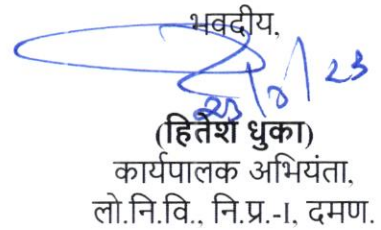 भवदीय,
(हितेश धुका)
कार्यपालक अभियंता,
लो.नि.वि., नि.प्र.-I, दमण.